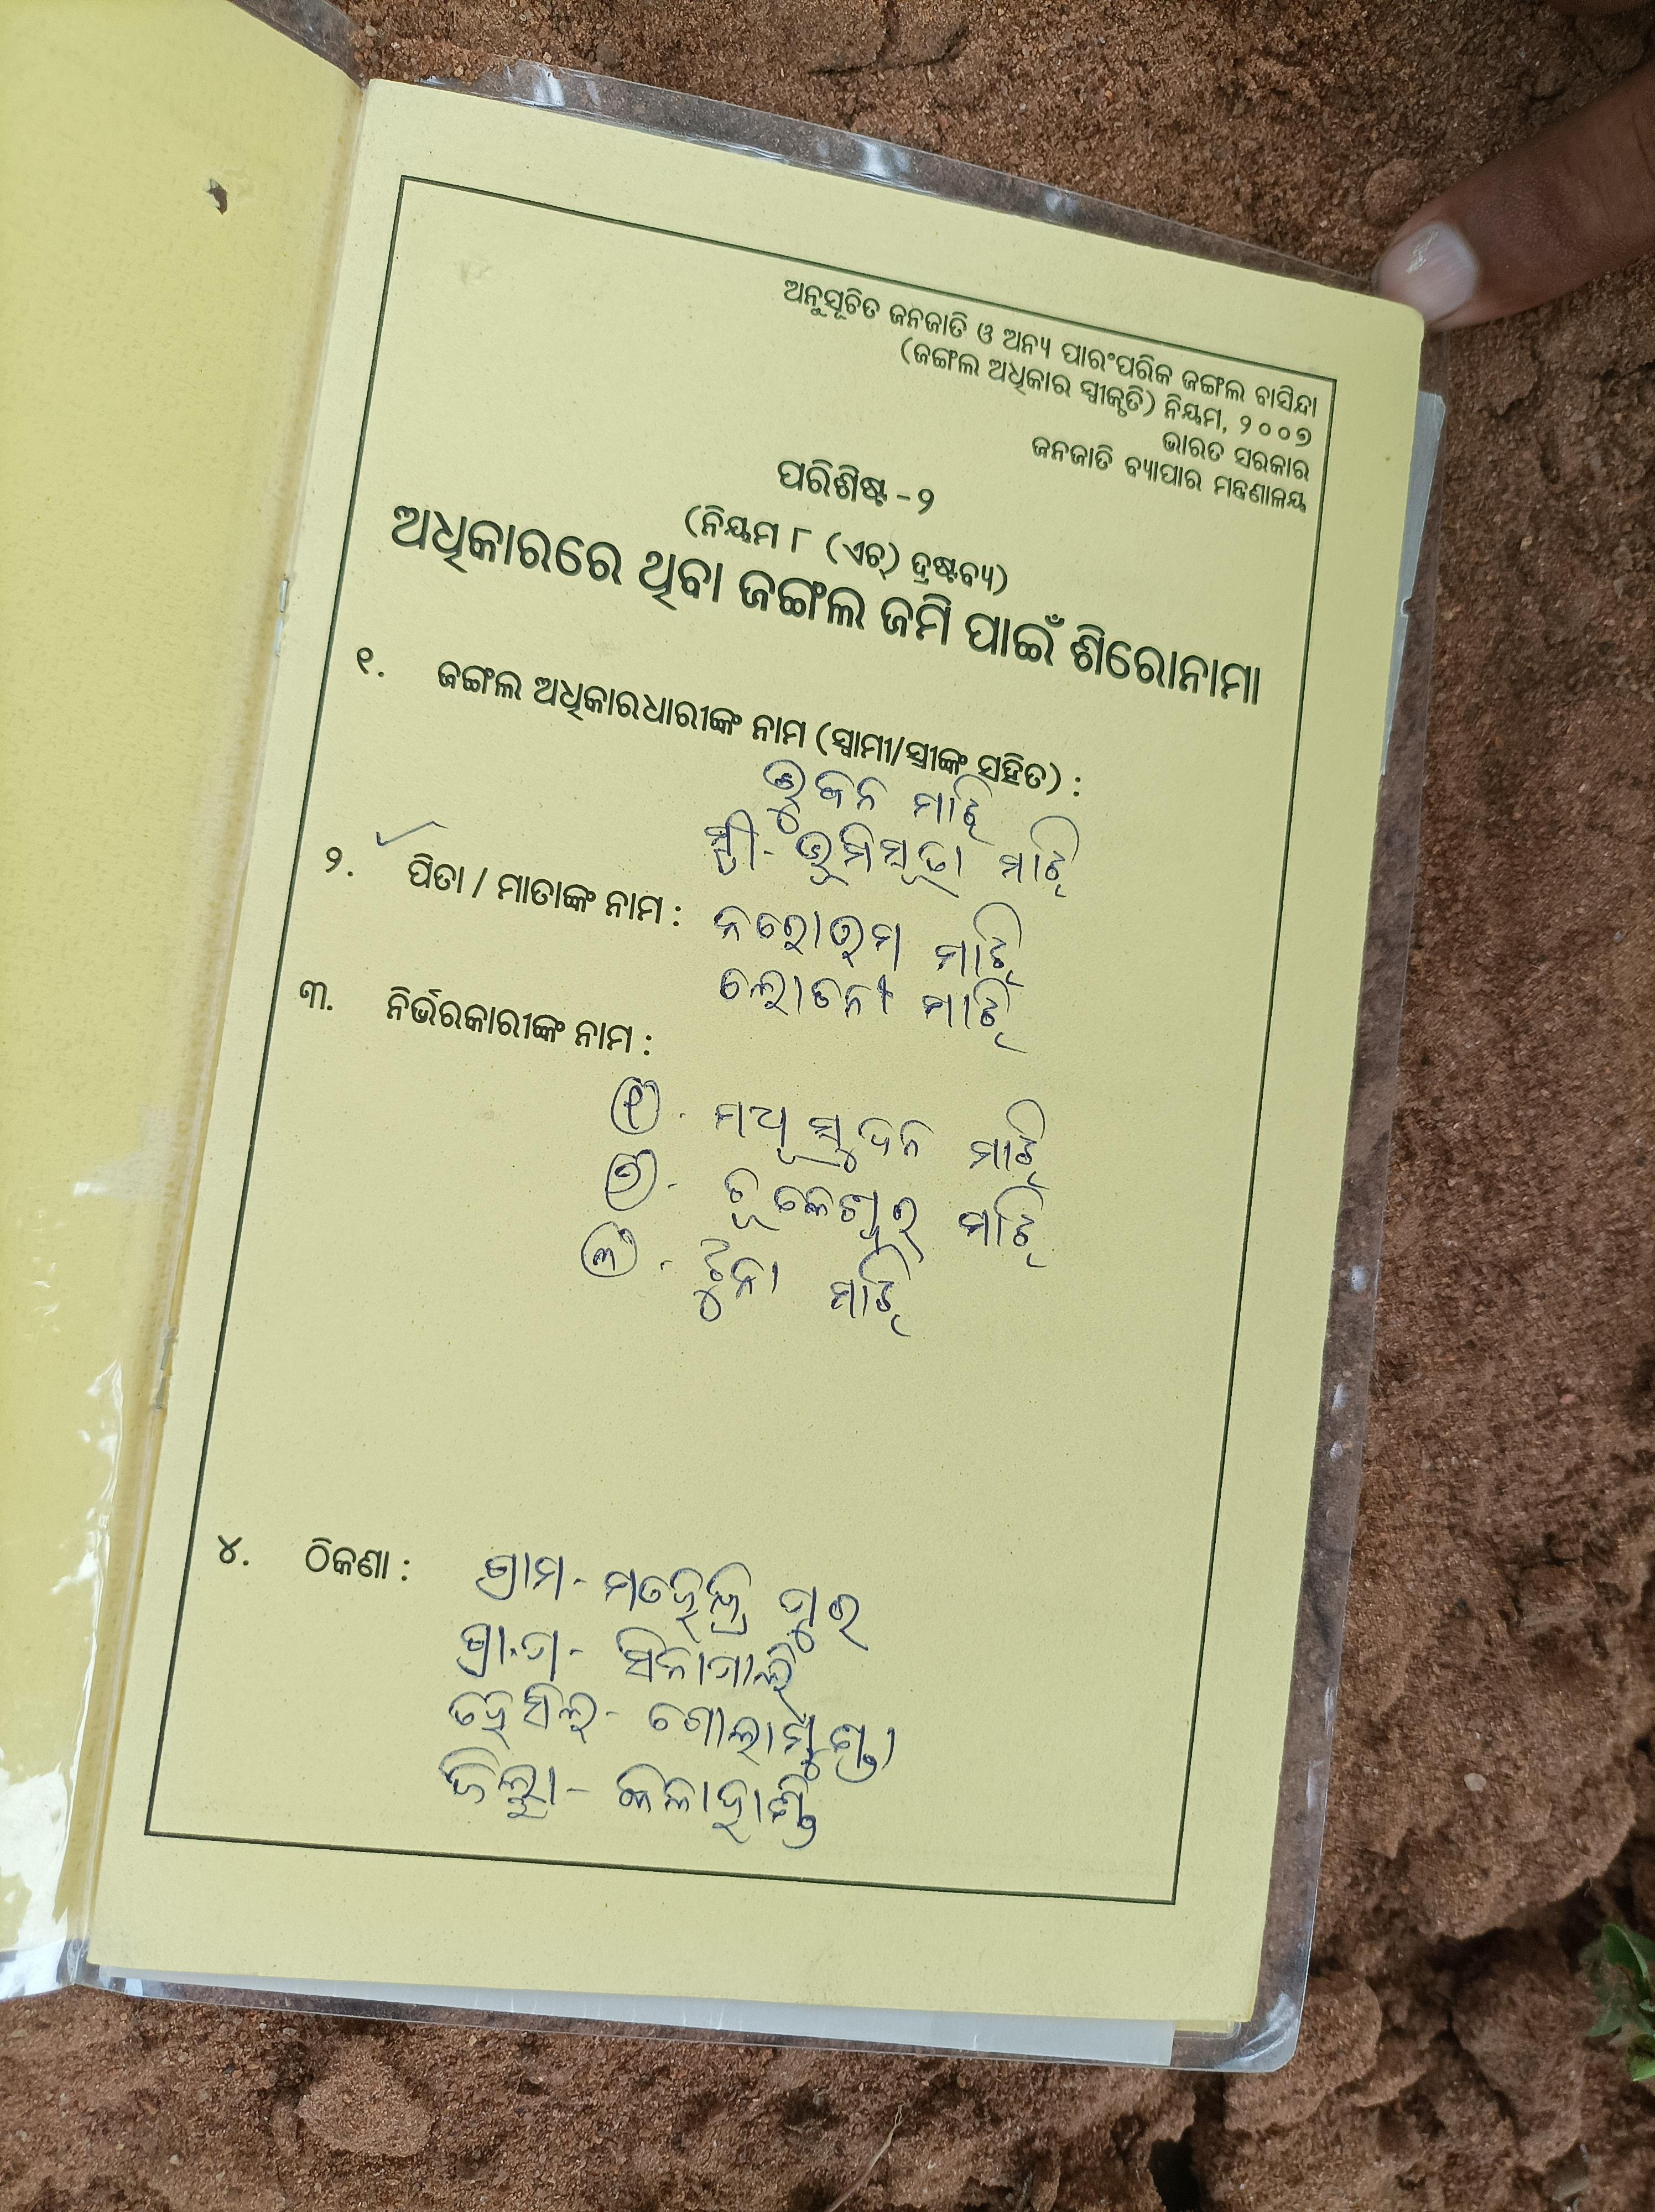 ଅନୁସୂଚିତ ଜନଜାତି ଓ ଅନ୍ୟ ପାରଂପରିକ ଜଙ୍ଗଲ ବାସିନ୍ଦା
(ଜଙ୍ଗଲ ଅଧିକାର ସ୍ୱୀକୃତି) ନିୟମ, ୨୦୦୭
ଭାରତ ସରକାର
ଜନଜାତି ବ୍ୟାପାର ମନ୍ତ୍ରଣାଳୟ
ପରିଶିଷ୍ଟ -୨
(ନିୟମ ୮ (ଏଚ୍) ଦ୍ରଷ୍ଟବ୍ୟ)
ଅଧିକାରରେ ଥିବା ଜଙ୍ଗଲ ଜମି ପାଇଁ ଶିରୋନାମା
୧. ଜଙ୍ଗଲ ଅଧିକାରଧାରୀଙ୍କ ନାମ (ସ୍ୱାମୀ/ସ୍ତ୍ରୀଙ୍କ ସହିତ) :
ମାଝି
ସ୍ତ୍ରୀ- ଭୂମିସୂତା ମାଝି
୨. ପିତା / ମାତାଙ୍କ ନାମ : ନରୋତମ ମାଝି
ଲୋଚନୀ ମାଝି
୩. ନିର୍ଭରକାରୀଙ୍କ ନାମ :
୧. ମଧୂସୁଦନ ମାଝି
୨. ମାଝି
୩. ଟୁନା ମାଝି
୪. ଠିକଣା : ଗ୍ରାମ- ମହେନ୍ଦ୍ରି ପୁର
ଗ୍ରା.ପ- ସିନାପାଲି
ତହସିଲ- ଗୋଲାମୁଣ୍ଡା
ଜିଲ୍ଲା- କଳାହାଣ୍ଡି